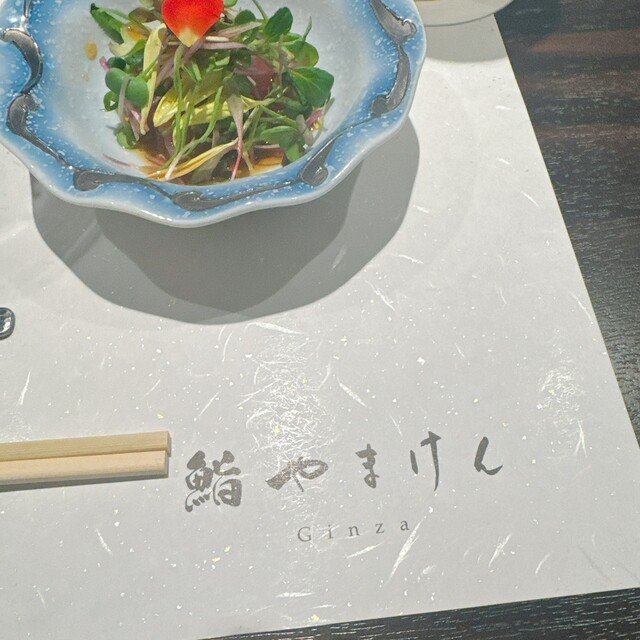 鮨やまけん
Ginza